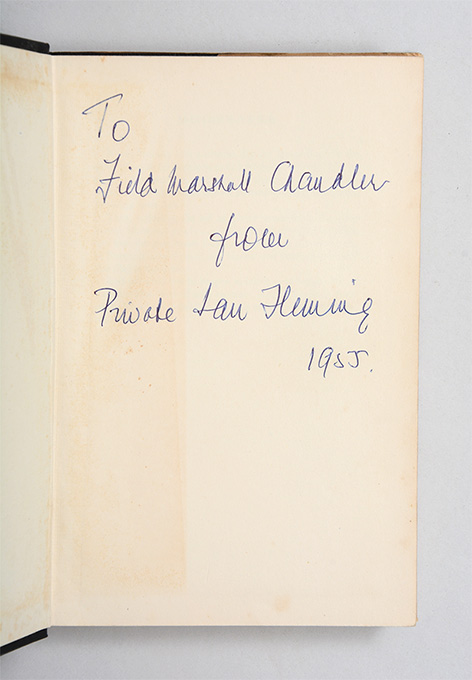 To
Field Marshall Chandler
from
Private Ian Fleming
1955.